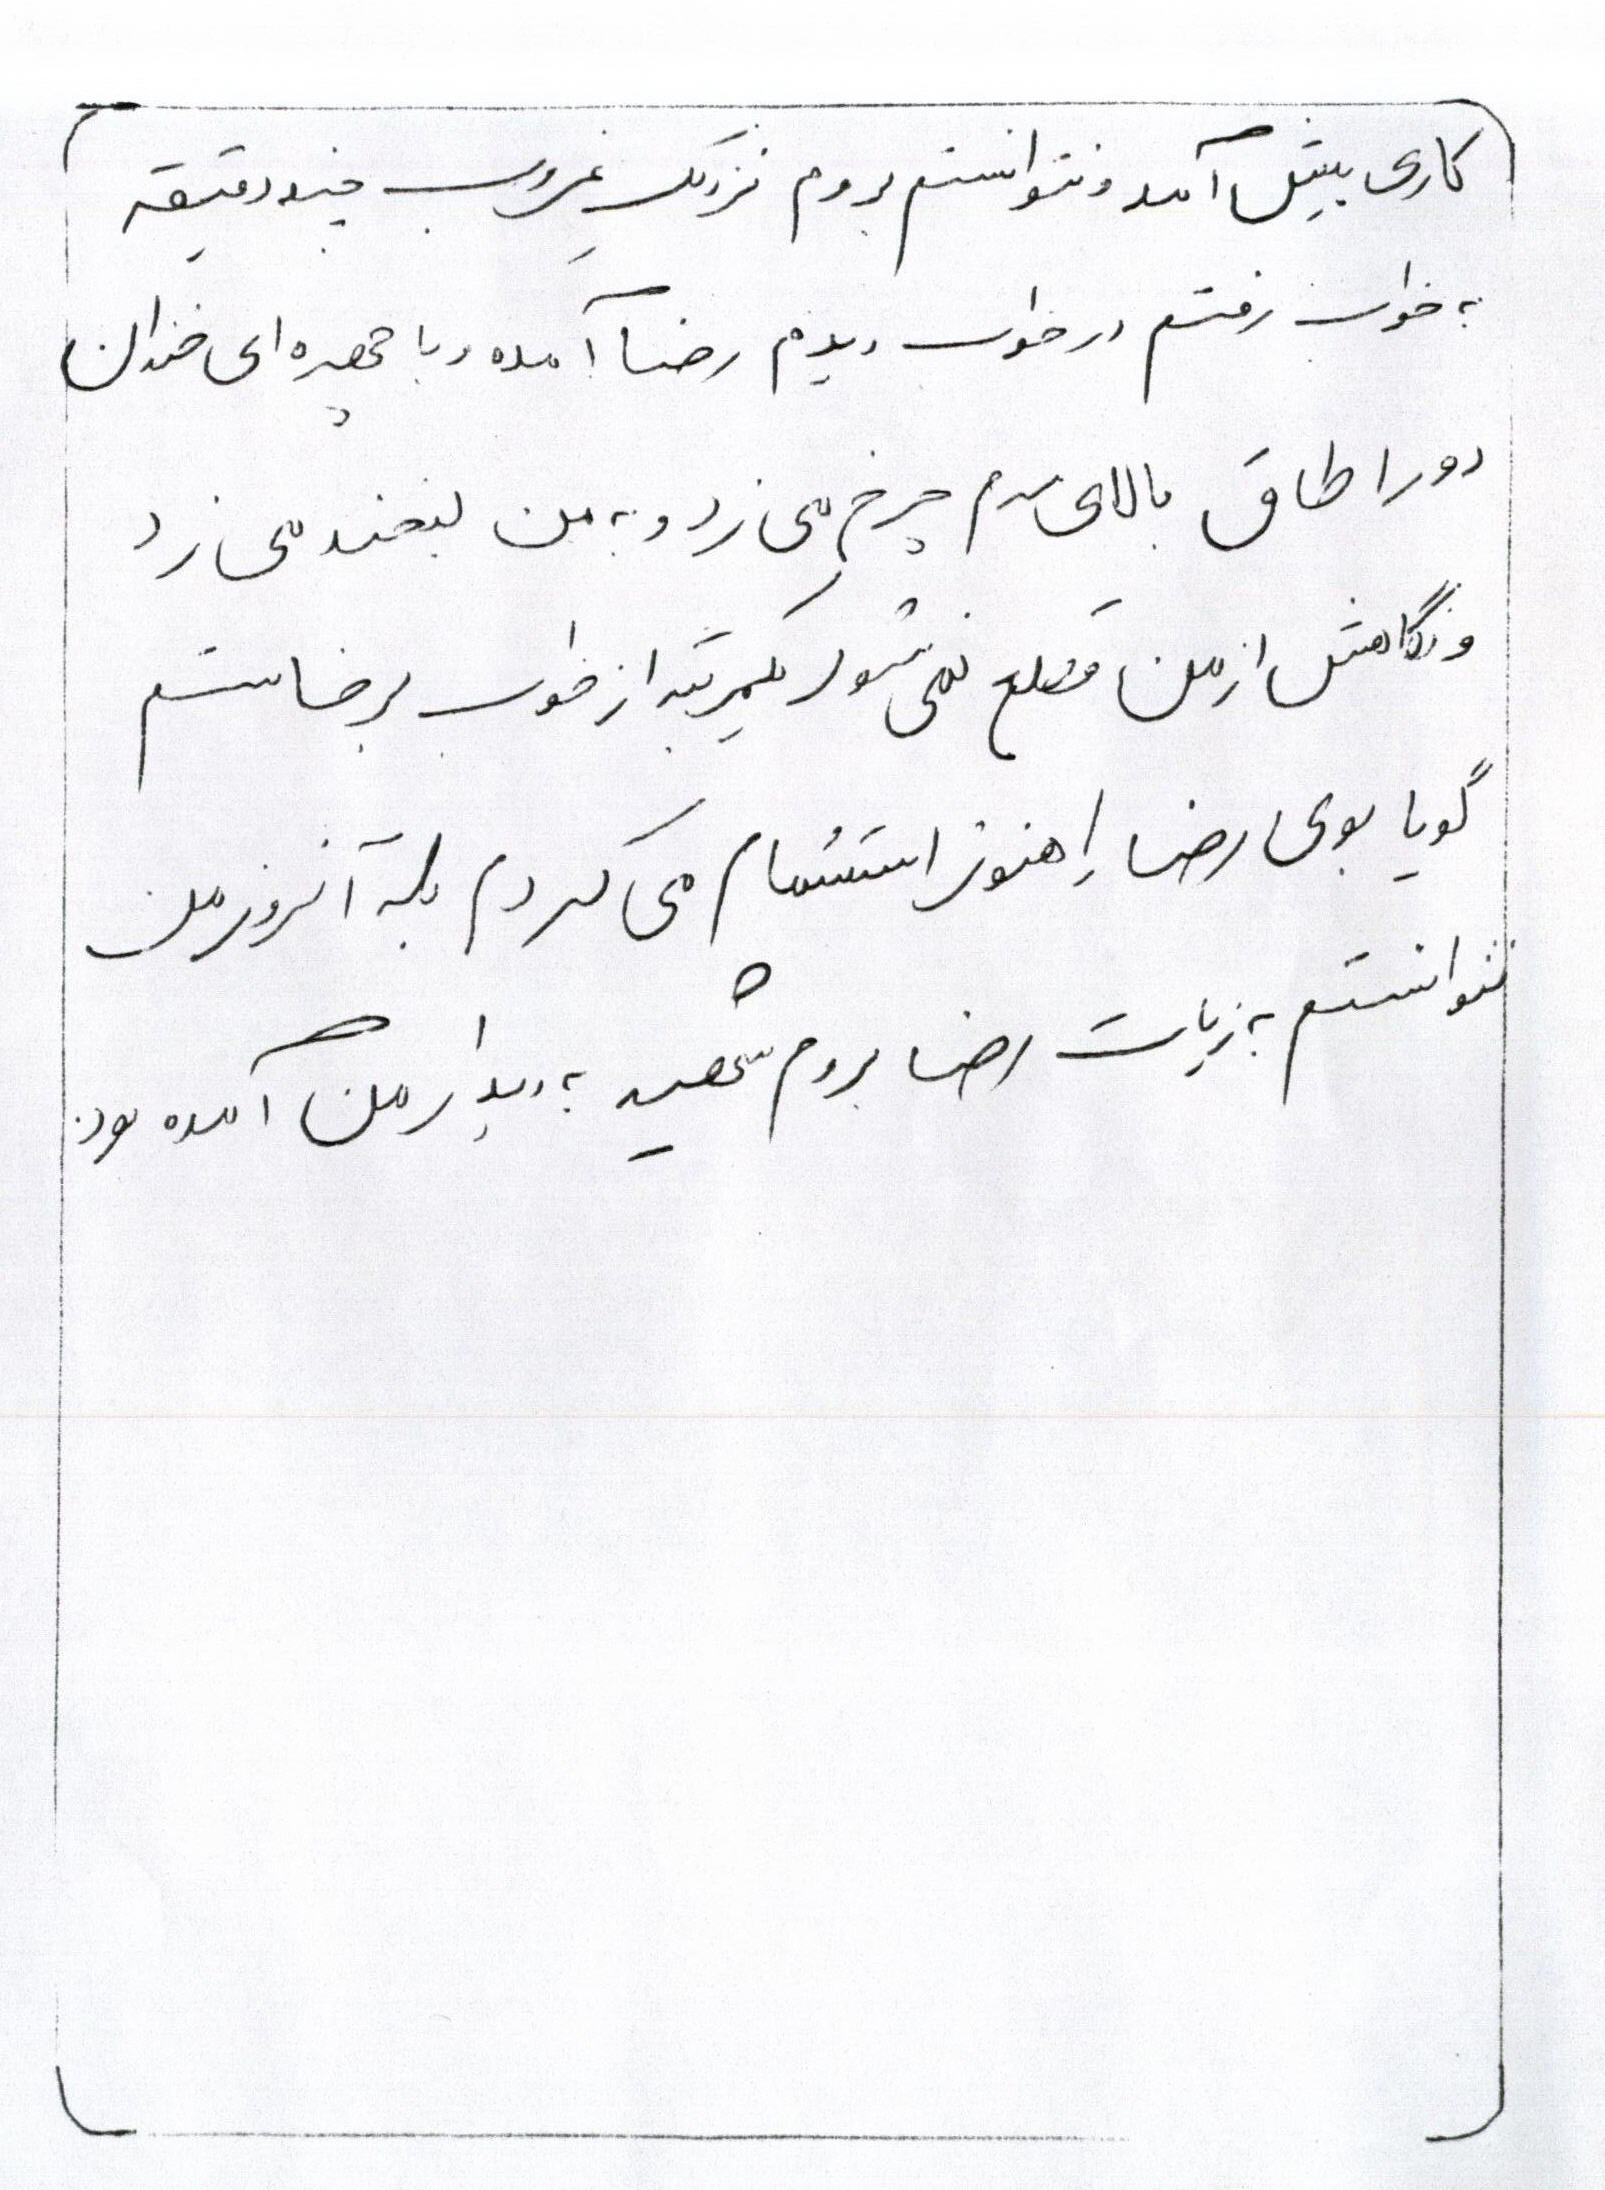 کاری پیش آمد و نتوانستم بروم نزدیک غروب چند دقیقه
به خواب رفتم در خواب دیدم رضا آمده و با چهره ای خندان
دور اطاق بالای سرم چرخ می زد و به من لبخند می زد
و نگاهش از من قطع نمی شود یکمرتبه از خواب برخاستم
گویا بوی رضا را هنوز استشمام می کردم بله آنروز من
نتوانستم به زیارت رضا بروم شهید به دیدار من آمده بود.